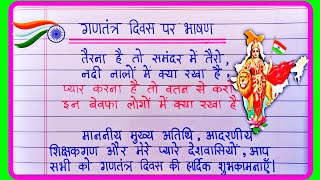 गणतंत्र दिवस पर भाषण
तैरना है तो समंदर में तैरो,
नदी नालों में क्या रखा है
प्यार करना है तो वतन से करो
इन बेवफा लोगों में क्या रखा है
माननीय मुख्य अतिथि, आदरणीय
शिक्षकगण और मेरे प्यारे देशवासियों, आप
सभी को गणतंत्र दिवस की हार्दिक शुभकामनाएँ।